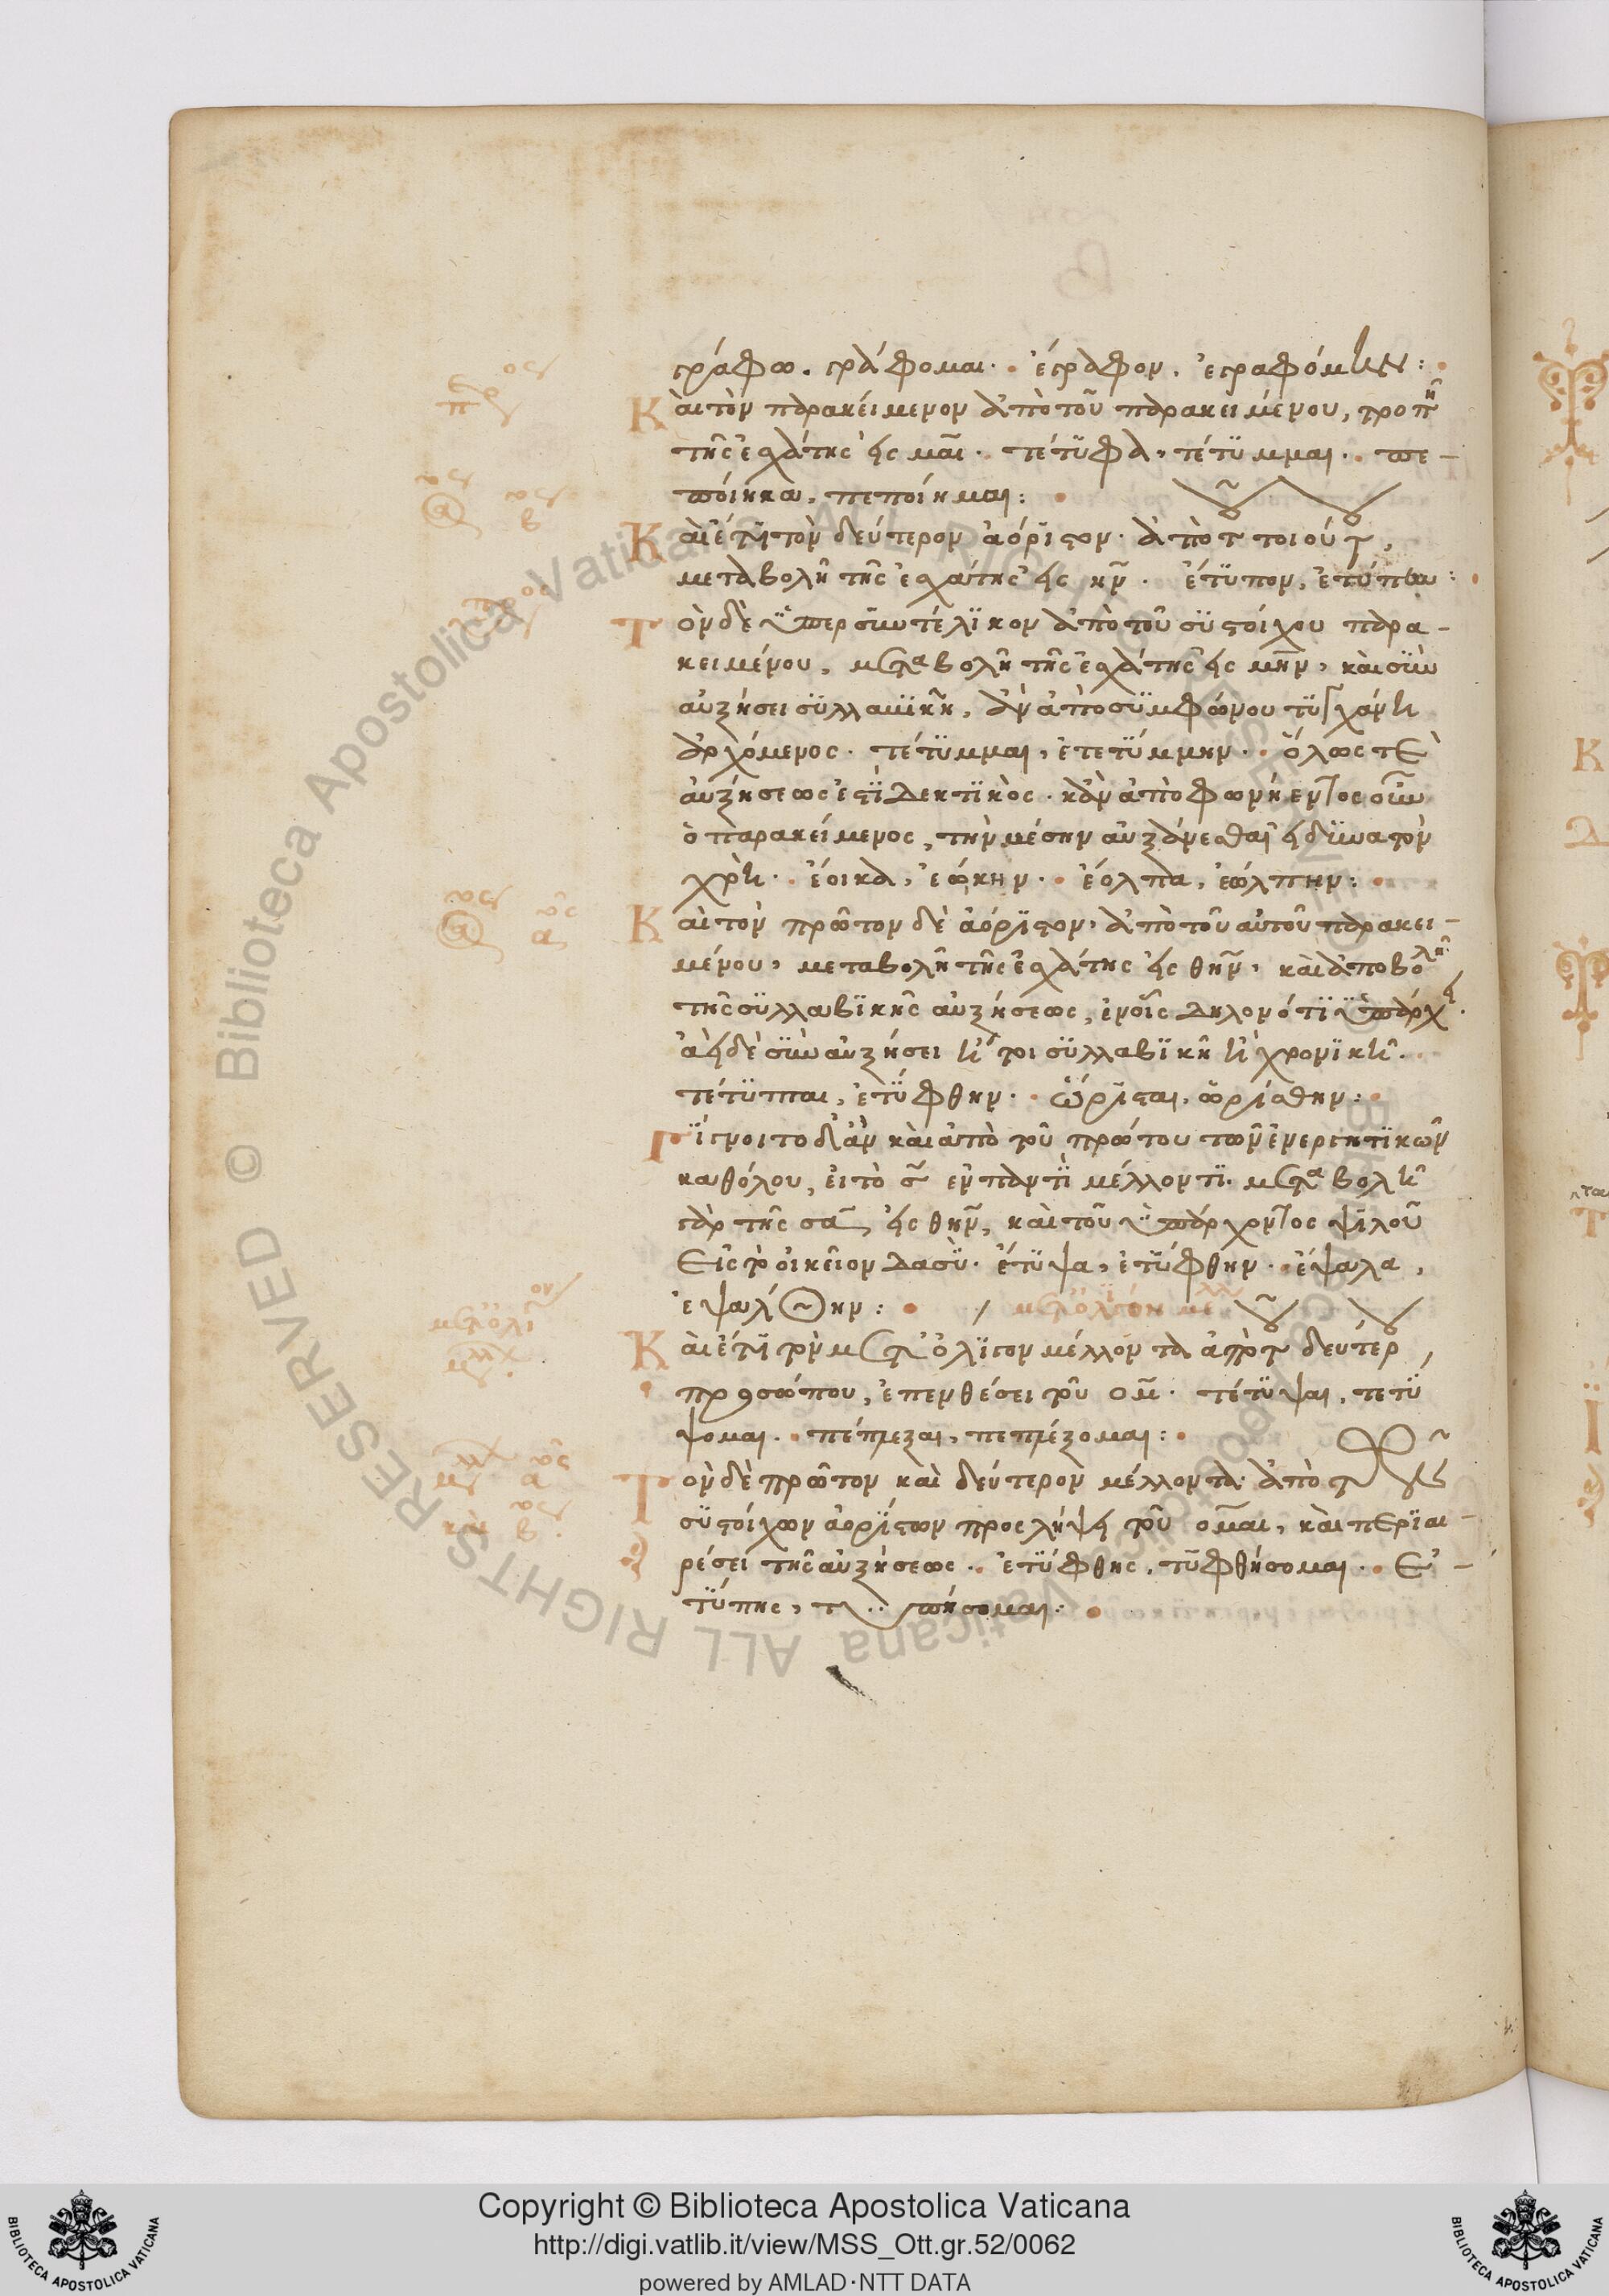 γράφω. γράφομαι· ἔγραφον. ἐγραφόμην:
Καὶ τὸν παρακείμενον ἀπὸ τοῦ παρακειμένου, τροπῆ
τῆς ἐσχάτης εἰς μαι· τέτυφα, τέτυμμαι· πε-
ποίηκα, πεποίημαι:
Καὶ ἔτι τὸν δεύτερον ἀόριστον· ἀπὸ τοῦ τοιούτου,
μεταβολῇ τῆς ἐσχάτης εἰς ην· ἔτυπον, ἐτύπην:
Τὸν δὲ ὑπερσυντέλικον ἀπὸ τοῦ συστοίχου παρα-
κειμένου, μεταβολῇ τῆς ἐσχάτης εἰς μην, καὶ σὺν
αὐξήσει συλλαβικῇ, ἂν ἀπὸ συμφώνου τυγχάνῃ
ἀρχόμενος· τέτυμμαι, ἐτετύμμην· ὅλως τε
αὐξήσεως ἐστὶ δεκτικὸς· κἂν ἀπὸ φωνήεντος οὖν
ὁ παρακείμενος, τὴν μέσην αὐξάνεσθαι εἰ δυνατὸν
χρὴ· ἔοικα, ἐῴκην· ἔολπα, ἐώλπην:
Καὶ τὸν πρῶτον δὲ ἀόριστον, ἀπὸ τοῦ αὐτοῦ παρακει-
μένου, μεταβολῇ τῆς ἐσχάτης εἰς θην, καὶ ἀποβολῇ
τῆς συλλαβικῆς αὐξήσεως, ἐν οἷς δηλονότι ὑπάρχει.
ἀεὶ δὲ σὺν αὐξήσει ἤτοι συλλαβικῇ ἢ χρονικῇ.
τέτυπται, ἐτύφθην· ὥρισται, ὡρίσθην:
Γίγνοιτο δ' ἂν καὶ ἀπὸ τοῦ πρώτου τῶν ἐνεργητικῶν
καθόλου, εἰ τὸ σ ἐν παντὶ μέλλοντι. μεταβολῇ
γὰρ τῆς σα, εἰς θην, καὶ τοῦ ὑπάρχοντος ψιλοῦ
εἰς τὸ οἰκεῖον δασὺ· ἔτυψα, ἐτύφθην· ἔψαλα,
ἐψάλθην: μετ' ὀλίγον μέλλ
Καὶ ἔτι τὸν μετ' ὀλίγον μέλλοντα ἀπὸ τοῦ δευτέρου
προσώπου, ἐπενθέσει τοῦ ομ· τέτυψαι, τετύ
ψομαι· πέπλεξαι, πεπλέξομαι:
Τὸν δὲ πρῶτον καὶ δεύτερον μέλλοντα ἀπὸ τῶν
συστοίχων ἀορίστων προσλήψει τοῦ ομαι, καὶ περιαι-
ρέσει τῆς αὐξήσεως· ἐτύφθης, τυφθήσομαι· ἐ-
τύπης, τυπήσομαι:
Copyright © Biblioteca Apostolica Vaticana
http://digi.vatlib.it/view/MSS_Ott.gr.52/0062
powered by AMLAD·NTT DATA